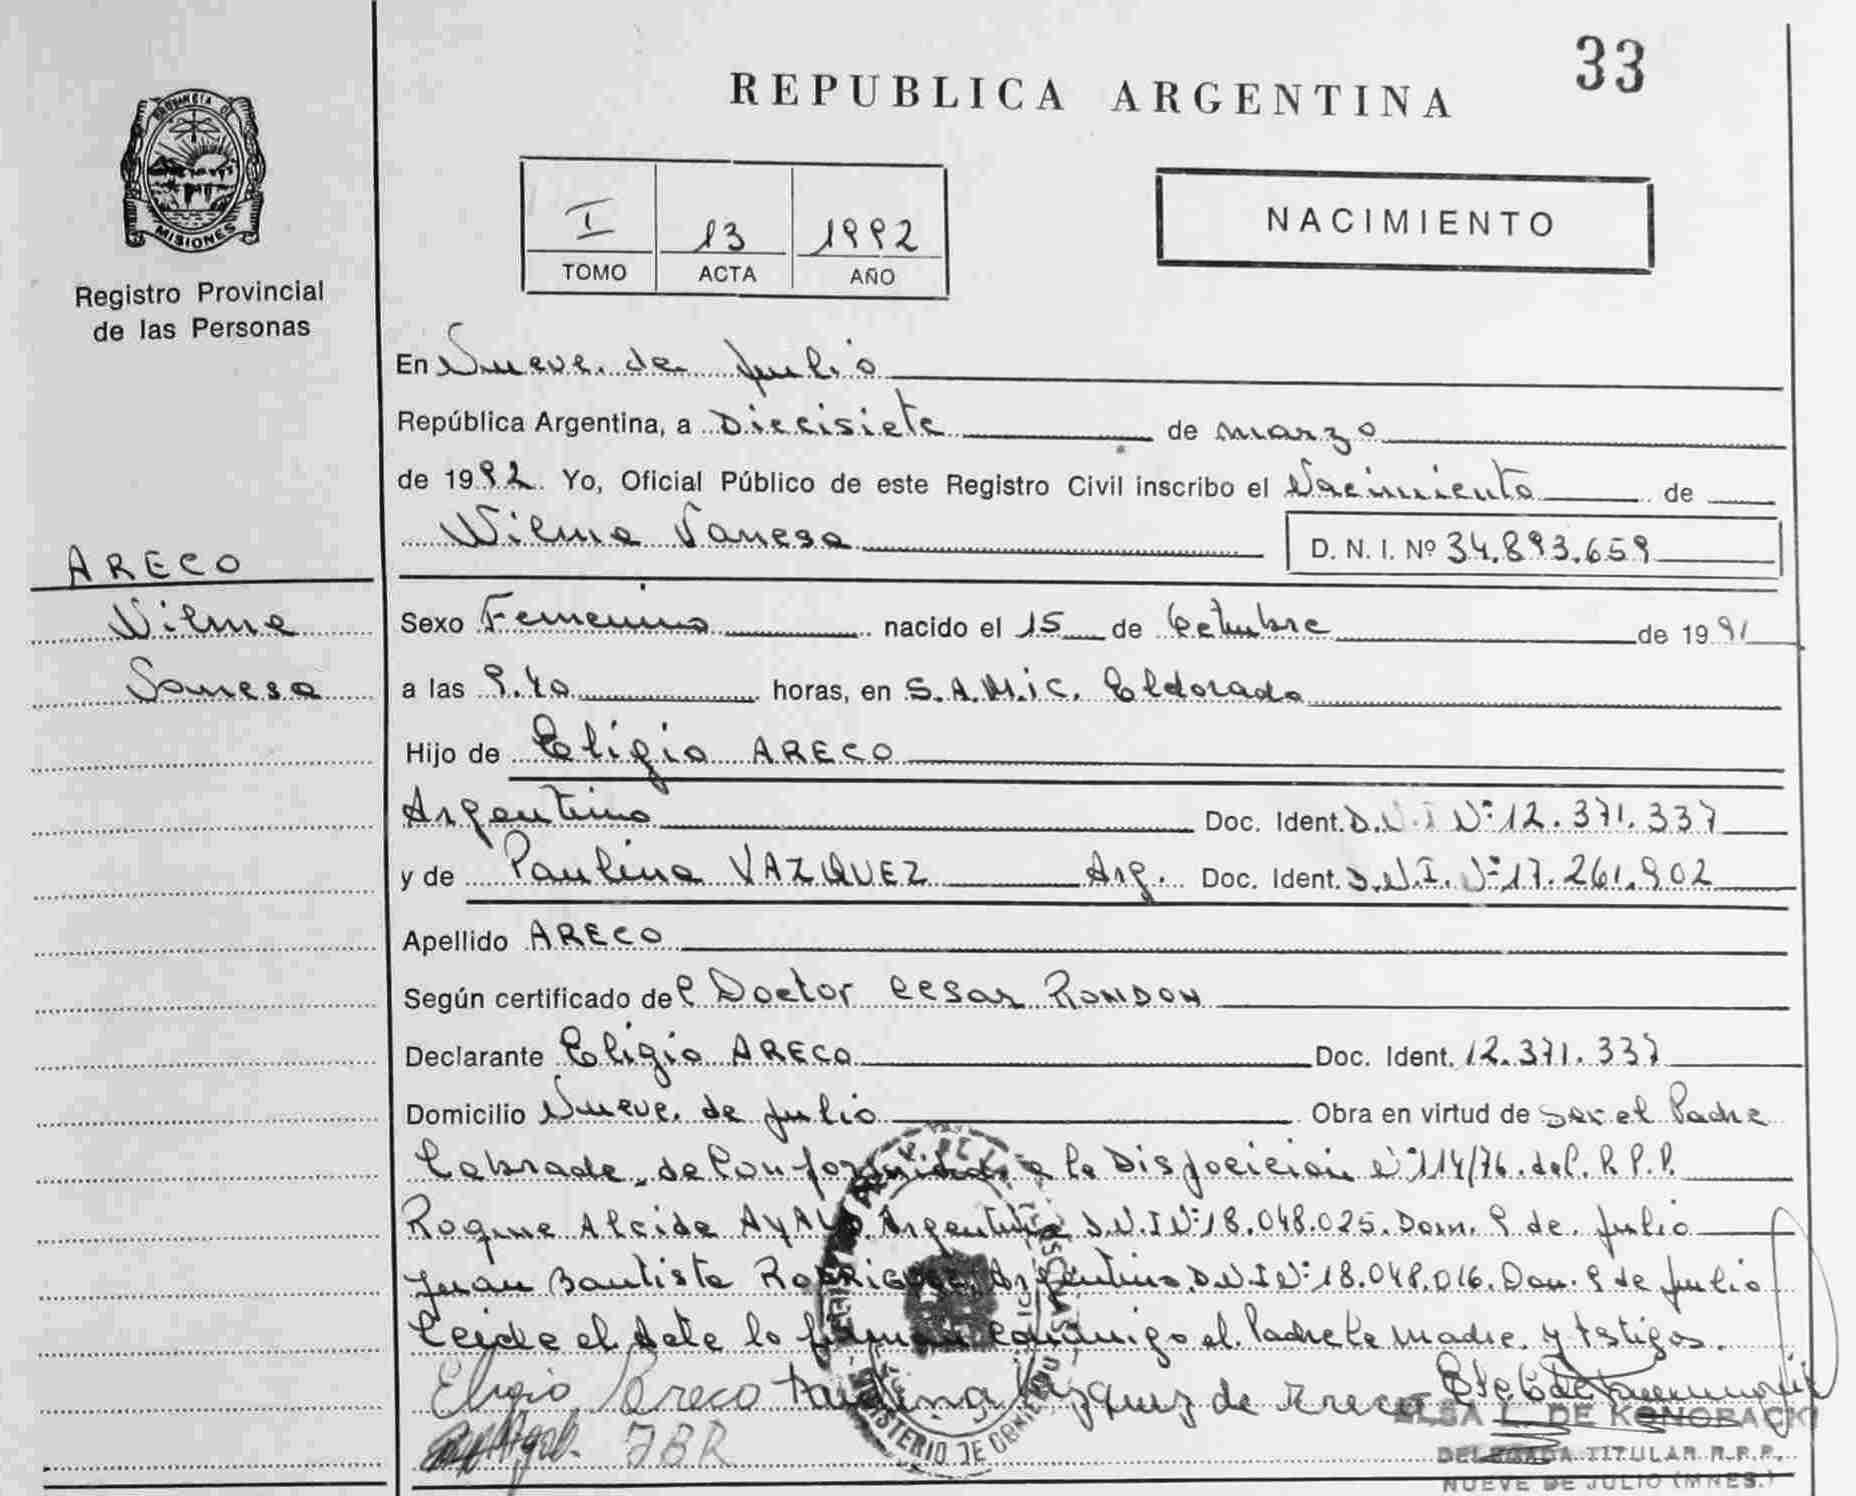 33
REPUBLICA ARGENTINA
PROVINCIA D
MISIONES
Registro Provincial
de las Personas
I 13 1992
TOMO ACTA AÑO
NACIMIENTO
En Nueve de Julio
República Argentina, a Diecisiete de marzo
de 1992. Yo, Oficial Público de este Registro Civil inscribo el Nacimiento de
Wilma Vanesa D. N. I. Nº 34.893.659
ARECO
Wilma
Vanesa
Sexo Femenino nacido el 15 de Octubre de 1991
a las 9.40 horas, en S.A.M.i.C. Eldorado
Hijo de Eligio ARECO
Argentino Doc. Ident. D.N.I Nº 12.371.337
y de Paulina VAZQUEZ Arg. Doc. Ident. D.N.I. Nº 17.261.902
Apellido ARECO
Según certificado del Doctor Cesar RONDON
Declarante Eligio ARECO Doc. Ident. 12.371.337
Domicilio Nueve de Julio Obra en virtud de ser el Padre
Labrada de Conformidad a la Disposicion Nº 114/76 del R.P.P.
Roque Alcide AYALA Argentino D.N.I Nº 18.048.025. Dom. 9 de Julio
Juan Bautista RODRIGUEZ Argentino D.N.I Nº 18.048.016. Dom. 9 de Julio
Leida el Acta la firman conmigo el Padre la madre y testigos.
Eligio Areco Paulina Vazquez de Areco
JBR
ELSA L. DE KONOBACKI
DELEGADA TITULAR R.P.P.
NUEVE DE JULIO (MNES.)